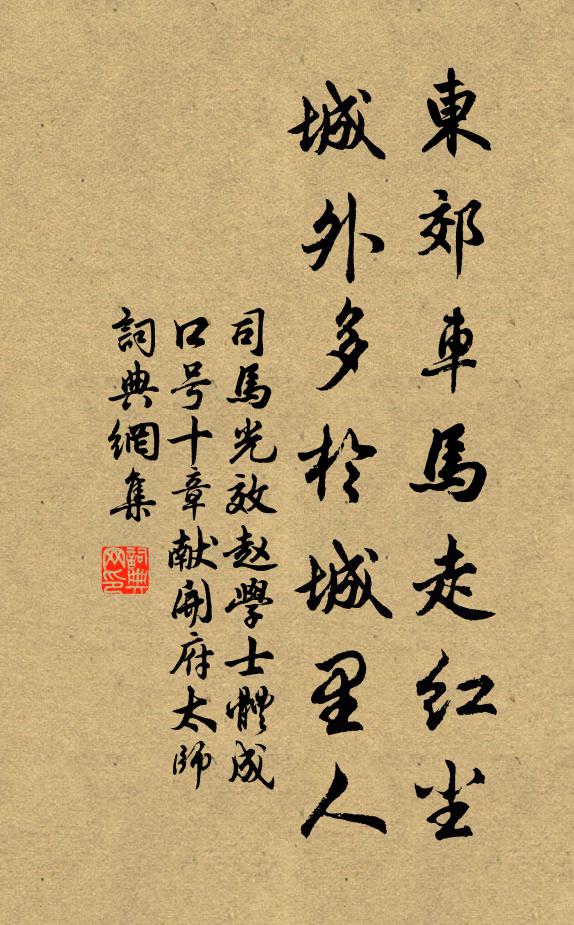 東郊車馬走红尘
城外多於城里人
司馬光效赵學士體成
口号十章献開府太師
詞典網集
詞典
网印